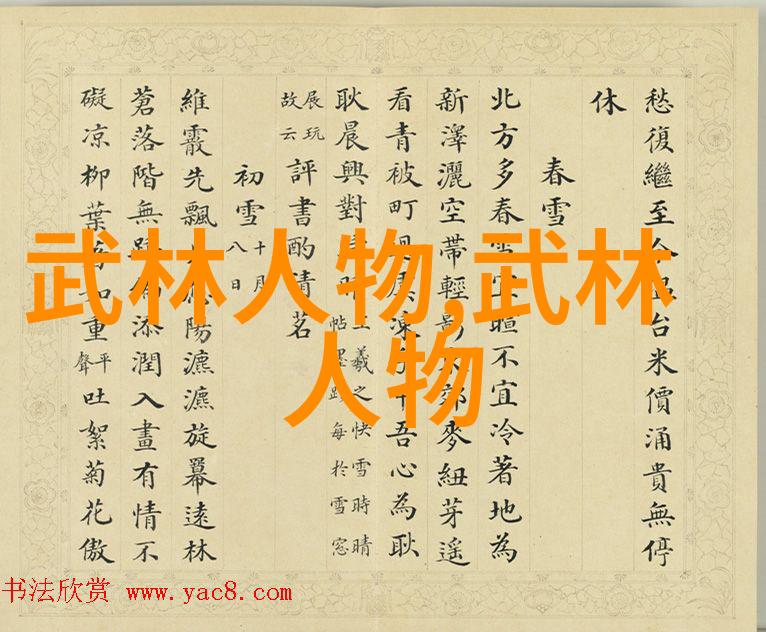 愁復繼至台米價涌貴無停
休
春雪
北方多春暄不宜冷著地為
新澤灑空帶輕影郊麥紐芽遥
看青被町凍吾心為耿
耿晨興對王羲之快雪時晴帖墨蹟每於雪窓
展玩故云評書酌清茗
初雪十月八日
維霰先飄陽瀌瀌旋羃遠林
蒼落階無添潤入畫有情不
礙凉柳葉重平聲吐絮菊花傲
武林人物,武林
人物
书法欣赏 www.yac8.com